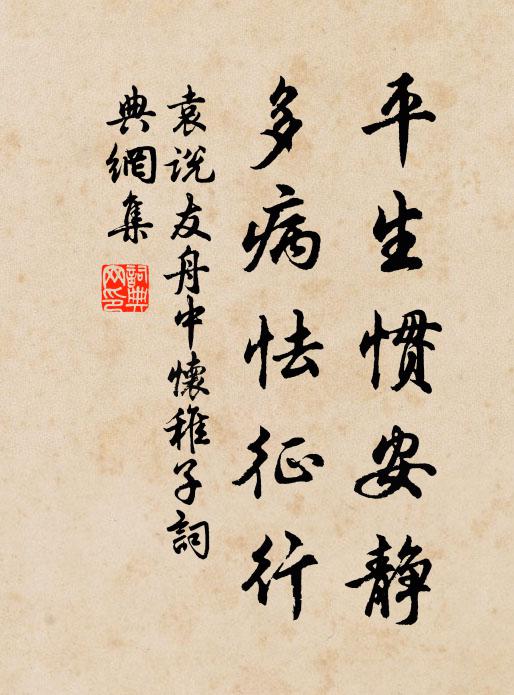 平生惯安静
多病怯征行
袁说友舟中懷稚子詞
典網集
詞典網印